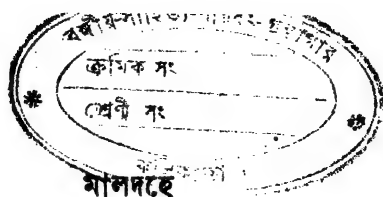 বঙ্গীয়-সাহিত্য-পরিষৎ-গ্রন্থাগার
ক্রমিক সং
শ্রেণী সং
মালদহে